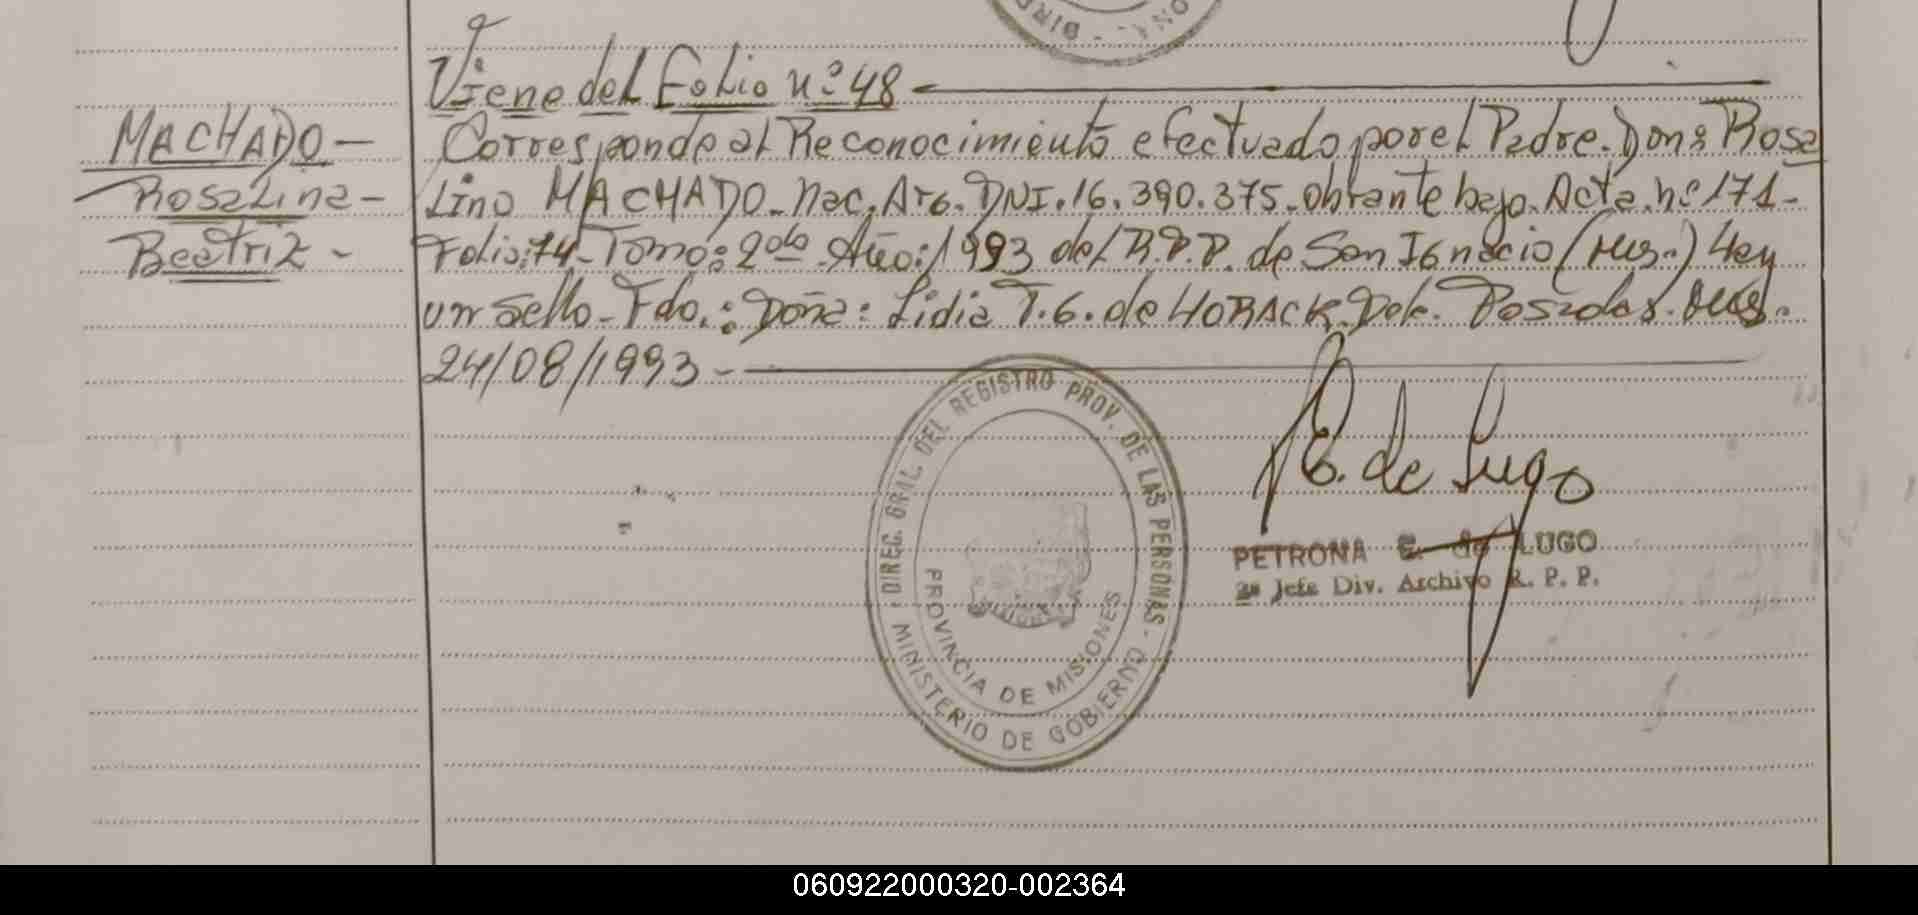 Viene del Folio nº 48
MACHADO -
Rosalina -
Beatriz -
Corresponde al Reconocimiento efectuado por el Padre. Don: Rosa
Lino MACHADO. Nac. Arg. DNI. 16.390.375. obrante bajo. Acta. nº 171 -
Folio: 74 - Tomo: 2do. Año: 1993 del R.P.P. de San Ignacio (Mis.) Hay
un Sello - Fdo.: Doña: Lidia T. G. de HORACK. Dele. Posadas. Mis.
24/08/1993 -
DIREC. GRAL. DEL REGISTRO PROV. DE LAS PERSONAS -
MINISTERIO DE GOBIERNO
PROVINCIA DE MISIONES
P E. de Lugo
PETRONA E. de LUGO
2º Jefe Div. Archivo R. P. P.
060922000320-002364